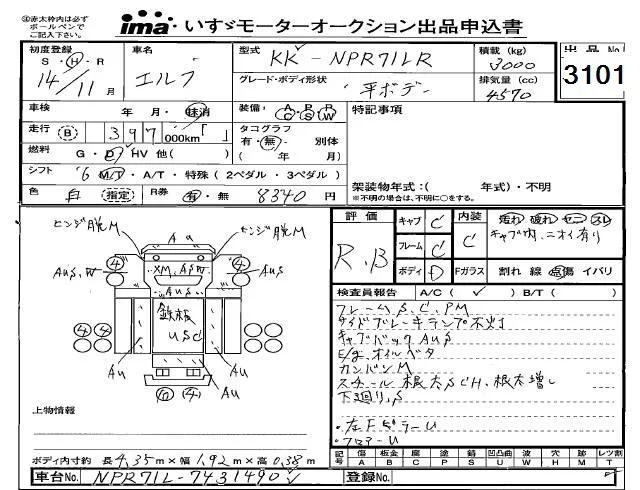 ㊟赤太枠内は必ず
ボールペンで
ご記入下さい。
ima いすゞモーターオークション出品申込書
初度登録
S・H・R
14/11月
車名
エルフ
型式
KK-NPR71LR
グレード・ボディ形状
平ボデー
積載(kg)
3000
排気量(cc)
4570
出品No.
3101
車検 年 月・抹消
走行 B 397,000km「 」
燃料 G・D・HV 他( )
シフト 6 M/T・A/T・特殊(2ペダル・3ペダル)
色 白 (指定) R券 有・無 8340 円
装備 A/C P/S P/W
タコグラフ
有・無・別体
( 年 月)
特記事項
架装物年式:( 年式)・不明
※不明の場合は、不明に○をする。
ヒンジ脱M Au ヒンジ脱M
④ AUS,W XM,AβW ④ AUS
鉄板
USC
④④
Au Au
Au
⑩④
上物情報
評価
R.B
キャブ C
フレーム C
ボディ D
内装 C
Fガラス
汚れ 破れ セニ スレ
キャブ内、ニオイ有り
割れ 線 点傷 イバリ
検査員報告 A/C(✓) B/T( )
フレームS,C,PM
サイドブレーキランプ不灯
キャブバックAUS
E/gオイルベタ
カンバンM
スチール根太SCH、根太増し
下廻り,S
・左FピラーU
・フロアーU
ボディ内寸約 長4.35m×幅1.92m×高0.38m
記号
傷 A
板金 B
腐 C
塗 P
錆 S
凹凸曲 U
波 W
穴 H
跡 M
レツ割 T
車台No. NPR71L-7431490✓
登録No.